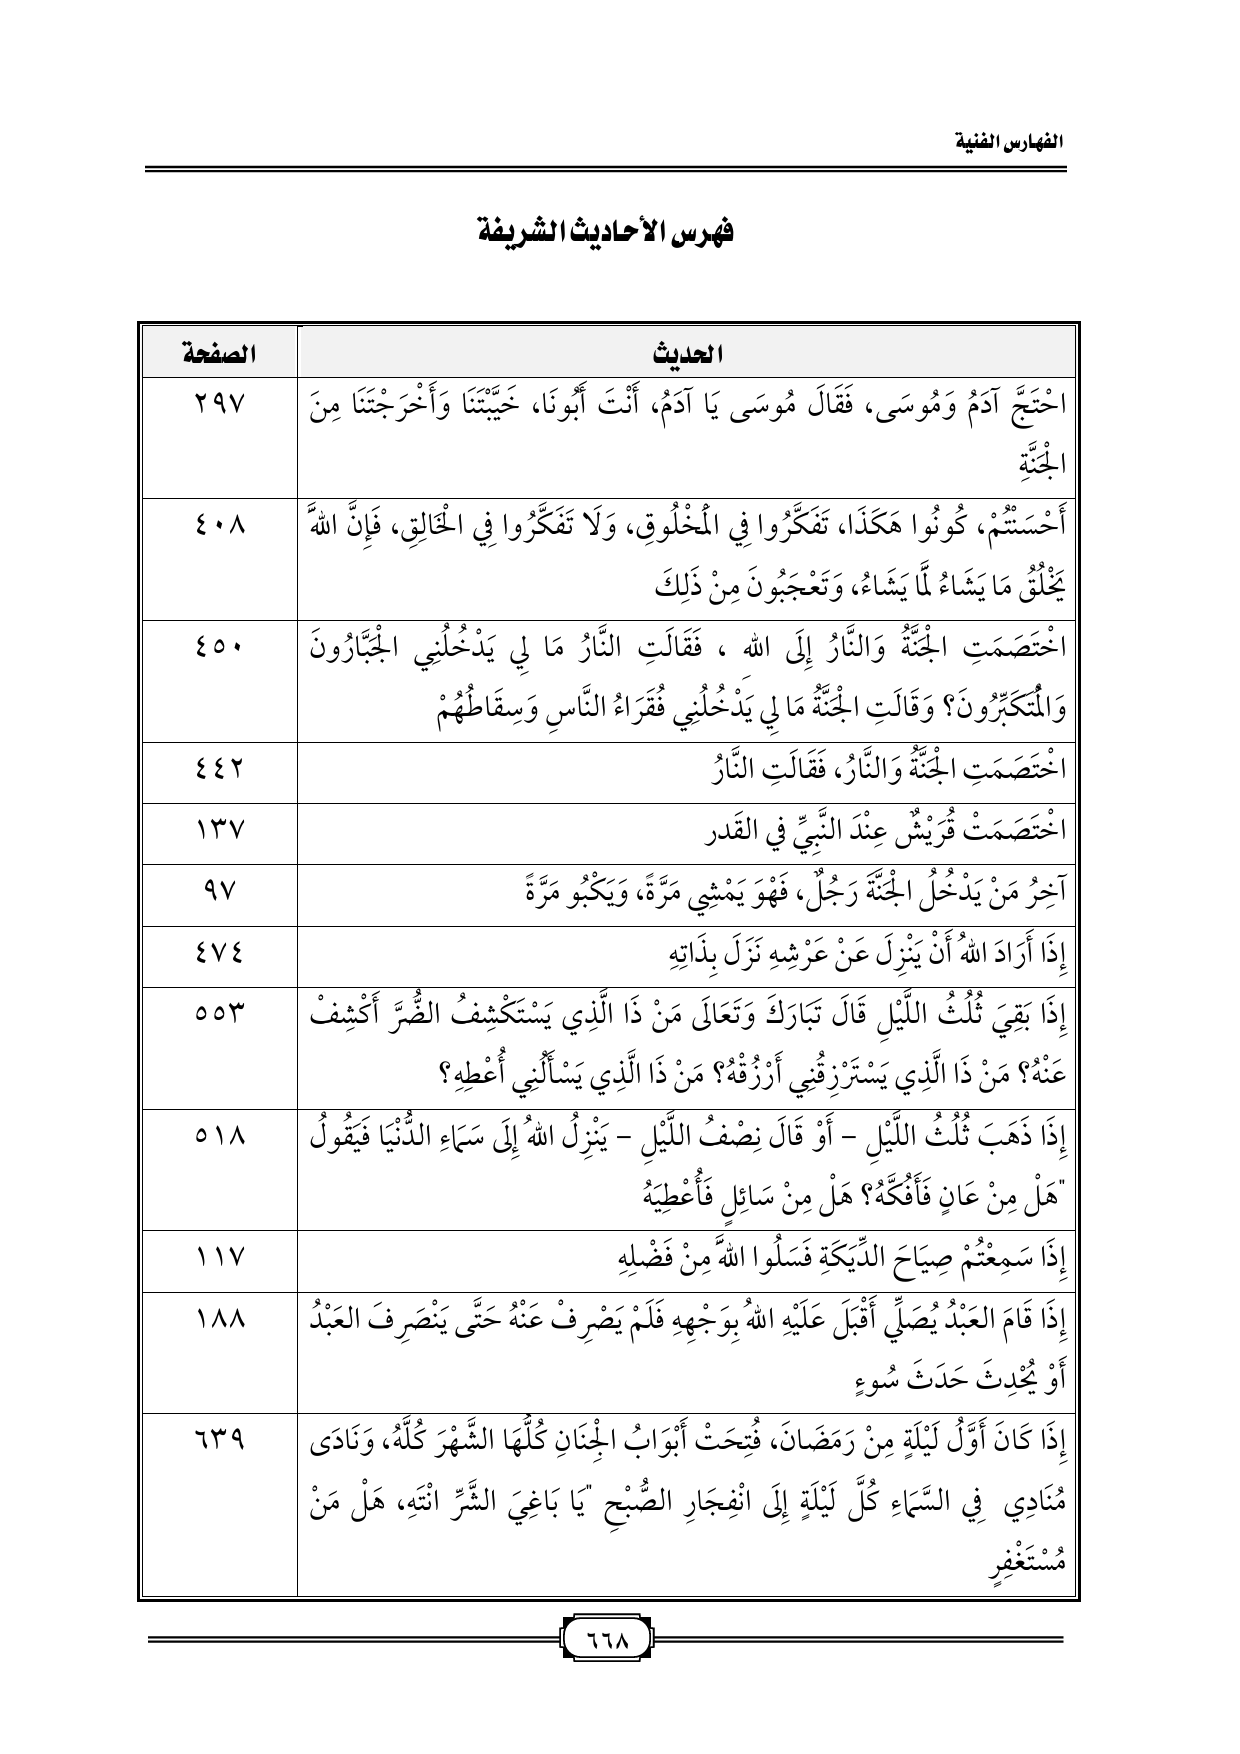 الفهارس الفنية
فهرس الأحاديث الشريفة
الحديث الصفحة
احْتَجَّ آدَمُ وَمُوسَى، فَقَالَ مُوسَى يَا آدَمُ، أَنْتَ أَبُونَا، خَيَّبْتَنَا وَأَخْرَجْتَنَا مِنَ ٢٩٧
الْجَنَّةِ
أَحْسَنْتُمْ، كُونُوا هَكَذَا، تَفَكَّرُوا فِي الْمَخْلُوقِ، وَلَا تَفَكَّرُوا فِي الْخَالِقِ، فَإِنَّ اللهَّ ٤٠٨
يَخْلُقُ مَا يَشَاءُ لَمَّا يَشَاءُ، وَتَعْجَبُونَ مِنْ ذَلِكَ
اخْتَصَمَتِ الْجَنَّةُ وَالنَّارُ إِلَى اللهِ ، فَقَالَتِ النَّارُ مَا لِي يَدْخُلُنِي الْجَبَّارُونَ ٤٥٠
وَالْمُتَكَبِّرُونَ؟ وَقَالَتِ الْجَنَّةُ مَا لِي يَدْخُلُنِي فُقَرَاءُ النَّاسِ وَسِقَاطُهُمْ
اخْتَصَمَتِ الْجَنَّةُ وَالنَّارُ، فَقَالَتِ النَّارُ ٤٤٢
اخْتَصَمَتْ قُرَيْشٌ عِنْدَ النَّبِيِّ في القَدر ١٣٧
آخِرُ مَنْ يَدْخُلُ الْجَنَّةَ رَجُلٌ، فَهْوَ يَمْشِي مَرَّةً، وَيَكْبُو مَرَّةً ٩٧
إِذَا أَرَادَ اللهُ أَنْ يَنْزِلَ عَنْ عَرْشِهِ نَزَلَ بِذَاتِهِ ٤٧٤
إِذَا بَقِيَ ثُلُثُ اللَّيْلِ قَالَ تَبَارَكَ وَتَعَالَى مَنْ ذَا الَّذِي يَسْتَكْشِفُ الضُّرَّ أَكْشِفْ ٥٥٣
عَنْهُ؟ مَنْ ذَا الَّذِي يَسْتَرْزِقُنِي أَرْزُقْهُ؟ مَنْ ذَا الَّذِي يَسْأَلُنِي أُعْطِهِ؟
إِذَا ذَهَبَ ثُلُثُ اللَّيْلِ – أَوْ قَالَ نِصْفُ اللَّيْلِ – يَنْزِلُ اللهُ إِلَى سَمَاءِ الدُّنْيَا فَيَقُولُ ٥١٨
"هَلْ مِنْ عَانٍ فَأَفُكَّهُ؟ هَلْ مِنْ سَائِلٍ فَأُعْطِيَهُ
إِذَا سَمِعْتُمْ صِيَاحَ الدِّيَكَةِ فَسَلُوا اللهَّ مِنْ فَضْلِهِ ١١٧
إِذَا قَامَ العَبْدُ يُصَلِّي أَقْبَلَ عَلَيْهِ اللهُ بِوَجْهِهِ فَلَمْ يَصْرِفْ عَنْهُ حَتَّى يَنْصَرِفَ العَبْدُ ١٨٨
أَوْ يُحْدِثَ حَدَثَ سُوءٍ
إِذَا كَانَ أَوَّلُ لَيْلَةٍ مِنْ رَمَضَانَ، فُتِحَتْ أَبْوَابُ الْجِنَانِ كُلُّهَا الشَّهْرَ كُلَّهُ، وَنَادَى ٦٣٩
مُنَادِي فِي السَّمَاءِ كُلَّ لَيْلَةٍ إِلَى انْفِجَارِ الصُّبْحِ "يَا بَاغِيَ الشَّرِّ انْتَهِ، هَلْ مَنْ
مُسْتَغْفِرٍ
٦٦٨